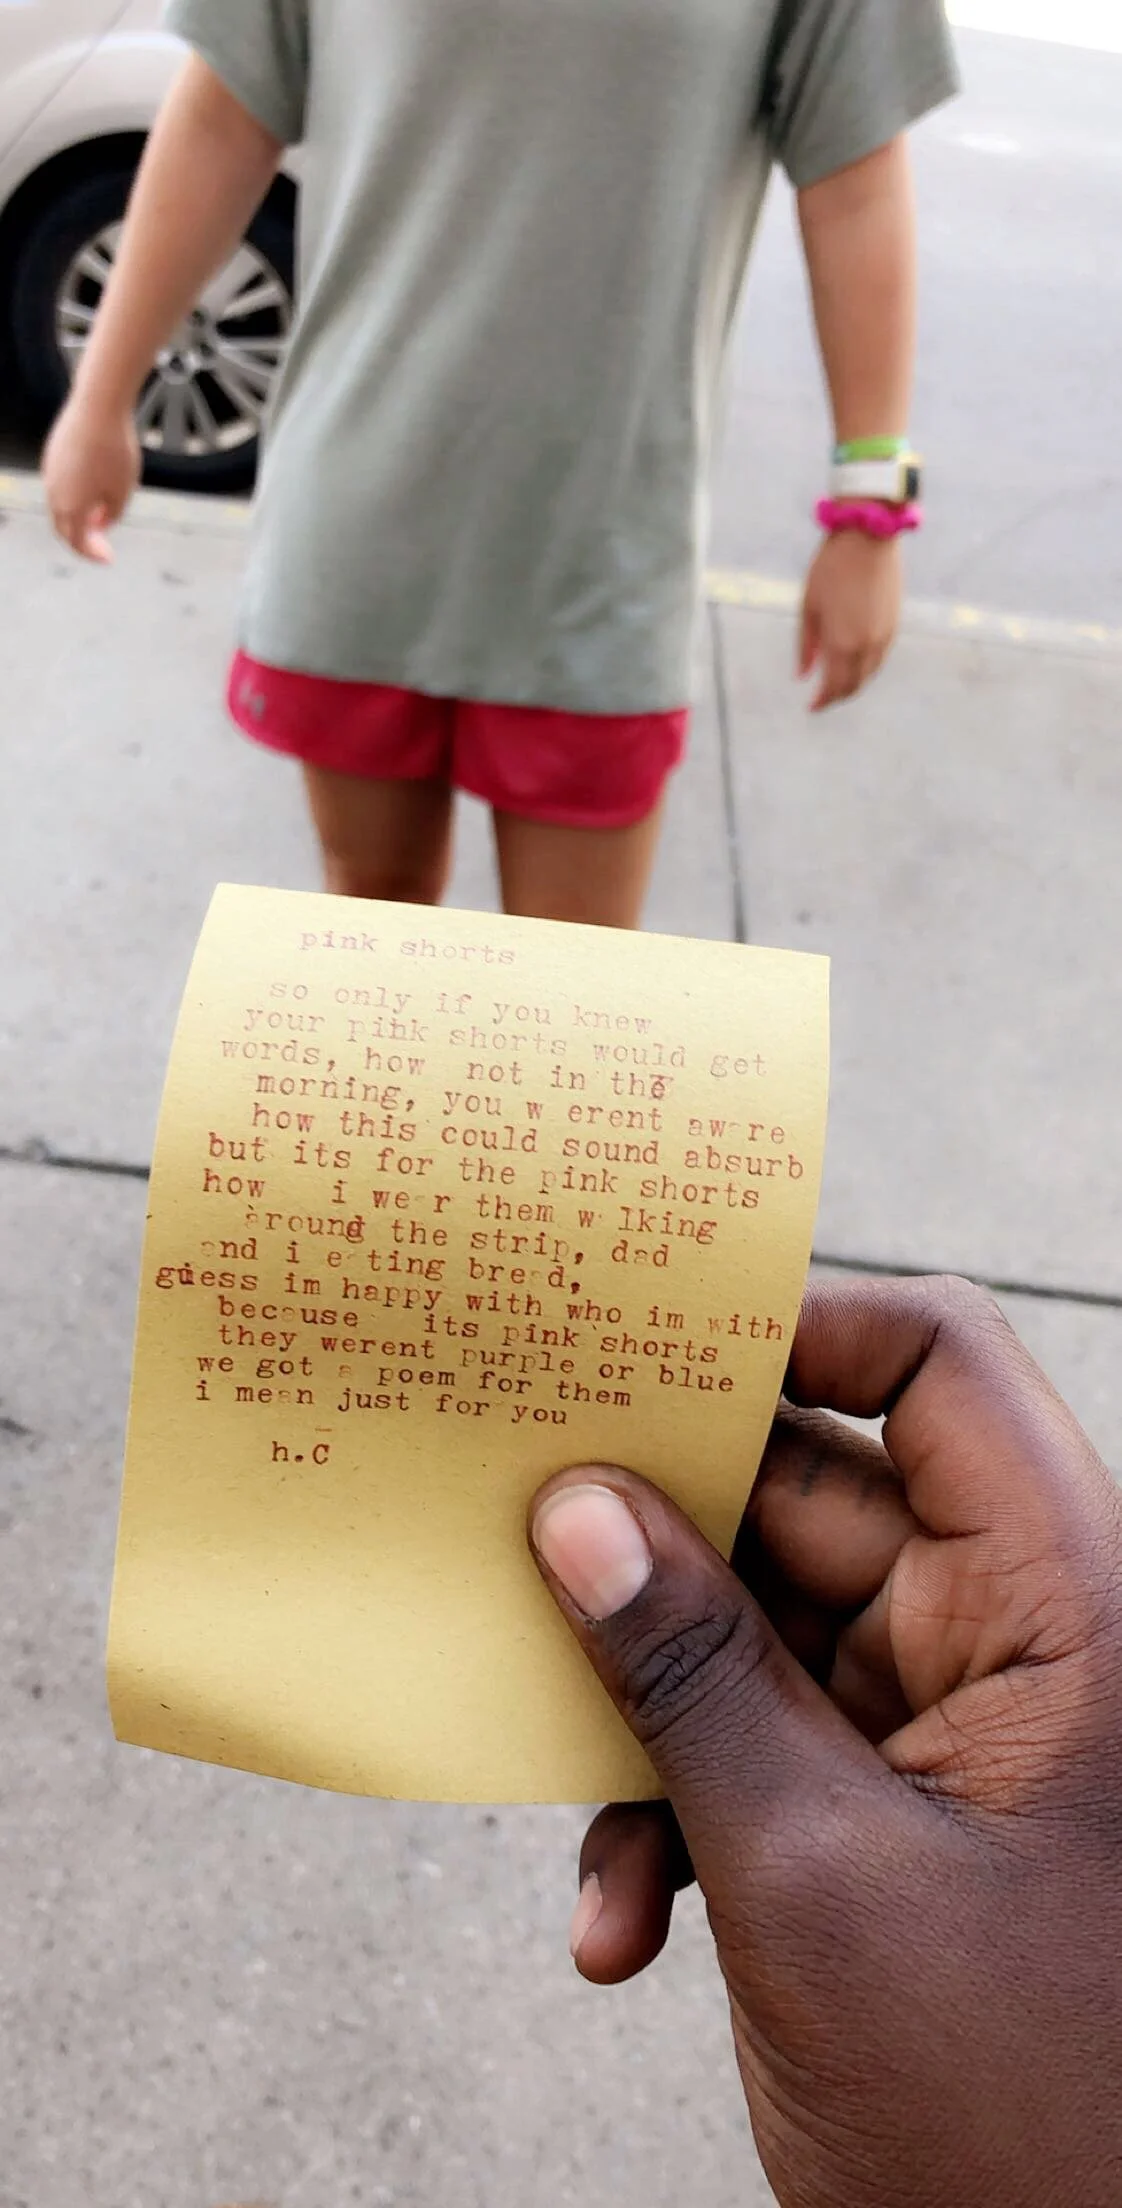 pink shorts
so only if you knew
your pink shorts would get
words, how not in the
morning, you w erent aware
how this could sound absurb
but its for the pink shorts
how i wear them walking
around the strip, dad
and i eating bread,
guess im happy with who im with
because its pink shorts
they werent purple or blue
we got a poem for them
i mean just for you
h.C